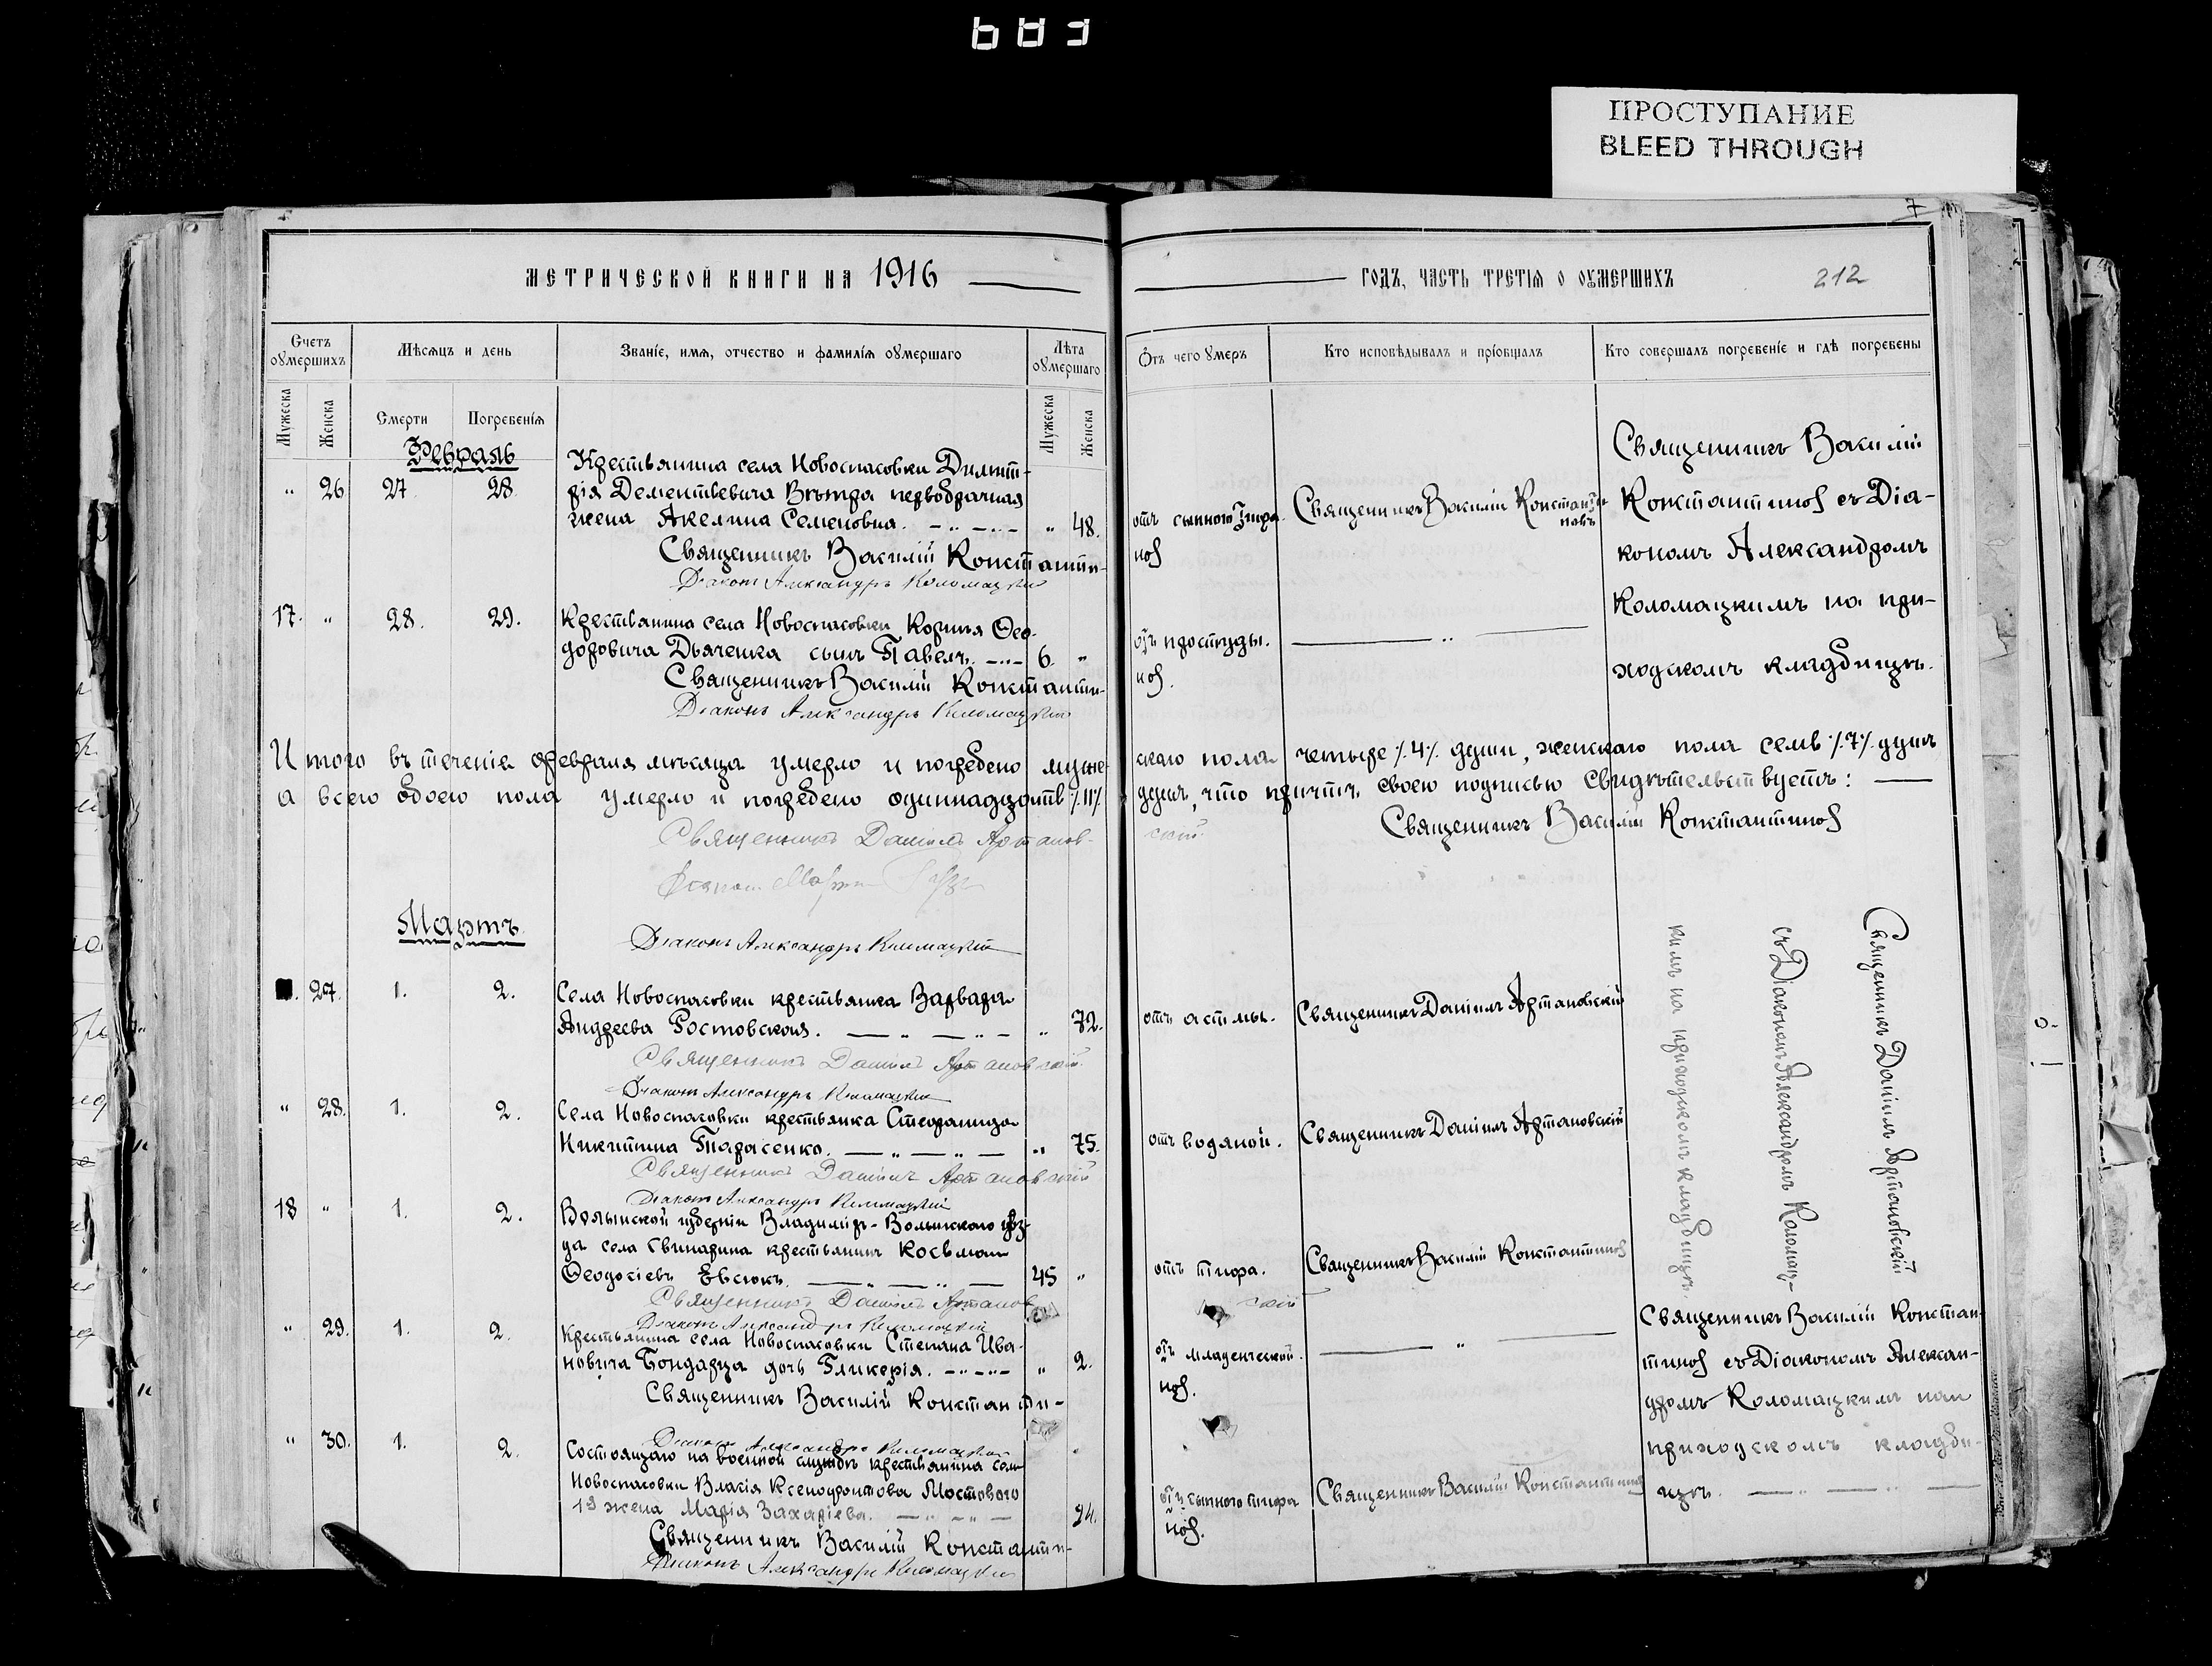 683
ПРОСТУПАНИЕ
BLEED THROUGH
7
МЕТРИЧЕСКОЙ КНИГИ НА 1916
ГОДЪ, ЧАСТЬ ТРЕТІЯ О ОУМЕРШИХЪ
212
Счетъ оумершихъ
Мѣсяцъ и день
Званіе, имя, отчество и фамилія оумершаго
Лѣта оумершаго
Отъ чего умеръ
Кто исповѣдывалъ и пріобщалъ
Кто совершалъ погребеніе и гдѣ погребены
Мужеска
Женска
Смерти
Погребенія
Мужеска
Женска
Февраль
" 26 27. 28.
Крестьянина села Новоспасовки Димит-
рія Дементьевича Вѣтра первобрачная
жена Акелина Семеновна. " 48.
Священникъ Василій Константи-
нов
Діаконъ Александръ Коломацкій
отъ сыпного тифа.
Священникъ Василій Константи-
новъ
Священникъ Василій
Константинов съ Діа-
кономъ Александромъ
Коломацкимъ на при-
ходскомъ кладбищѣ.
17. " 28. 29.
Крестьянина села Новоспасовки Корнія Ѳео-
доровича Дьяченка сынъ Павелъ. 6. "
Священникъ Василій Константи-
нов.
Діаконъ Александръ Коломацкій
отъ простуды.
"
Итого въ теченіе февраля мѣсяца умерло и погребено муже-
скаго пола четыре ٪4٪ души, женскаго пола семь ٪7٪ душъ
а всего обоего пола умерло и погребено одиннадцать ٪11٪
душъ, что причтъ своею подписью свидѣтельствуетъ:
Священникъ Василій Константинов
Священникъ Даніилъ Артанов-
скій
Діаконъ Александръ Коломацкій
Мартъ
27. 1. 2.
Села Новоспасовки крестьянка Варвара
Андреева Ростовская. " 72.
Священникъ Даніилъ Артановскій
Діаконъ Александръ Коломацкій
отъ астмы.
Священникъ Даніилъ Артановскій
Священникъ Даніилъ Артановскій
съ Діакономъ Александромъ Коломац-
кимъ на приходскомъ кладбищѣ.
" 28. 1. 2.
Села Новоспасовки крестьянка Стефанида
Никитина Тарасенко. " 75.
Священникъ Даніилъ Артановскій
Діаконъ Александръ Коломацкій
отъ водяной.
Священникъ Даніилъ Артановскій
18 " 1. 2.
Волынской губерніи Владиміръ-Волынскаго уѣз-
да села Свинарина крестьянинъ Косьма
Ѳеодосіевъ Евсюкъ. 45 "
Священникъ Даніилъ Артанов
скій
Діаконъ Александръ Коломацкій
отъ тифа.
Священникъ Василій Константинов
" 29. 1. 2.
Крестьянина села Новоспасовки Степана Ива-
новича Бондарца дочь Гликерія. " 2.
Священникъ Василій Константи-
нов.
Діаконъ Александръ Коломацкій
отъ младенческой.
"
Священникъ Василій Констан-
тинов съ Діакономъ Алексан-
дромъ Коломацкимъ на
приходскомъ кладби-
щѣ.
" 30. 1. 2.
Состоящаго на военной службѣ крестьянина села
Новоспасовки Власія Ксенофонтова Мостового
1я жена Марія Захаріева. 24.
Священникъ Василій Константи-
нов.
Діаконъ Александръ Коломацкій
отъ сыпного тифа
Священникъ Василій Константинов